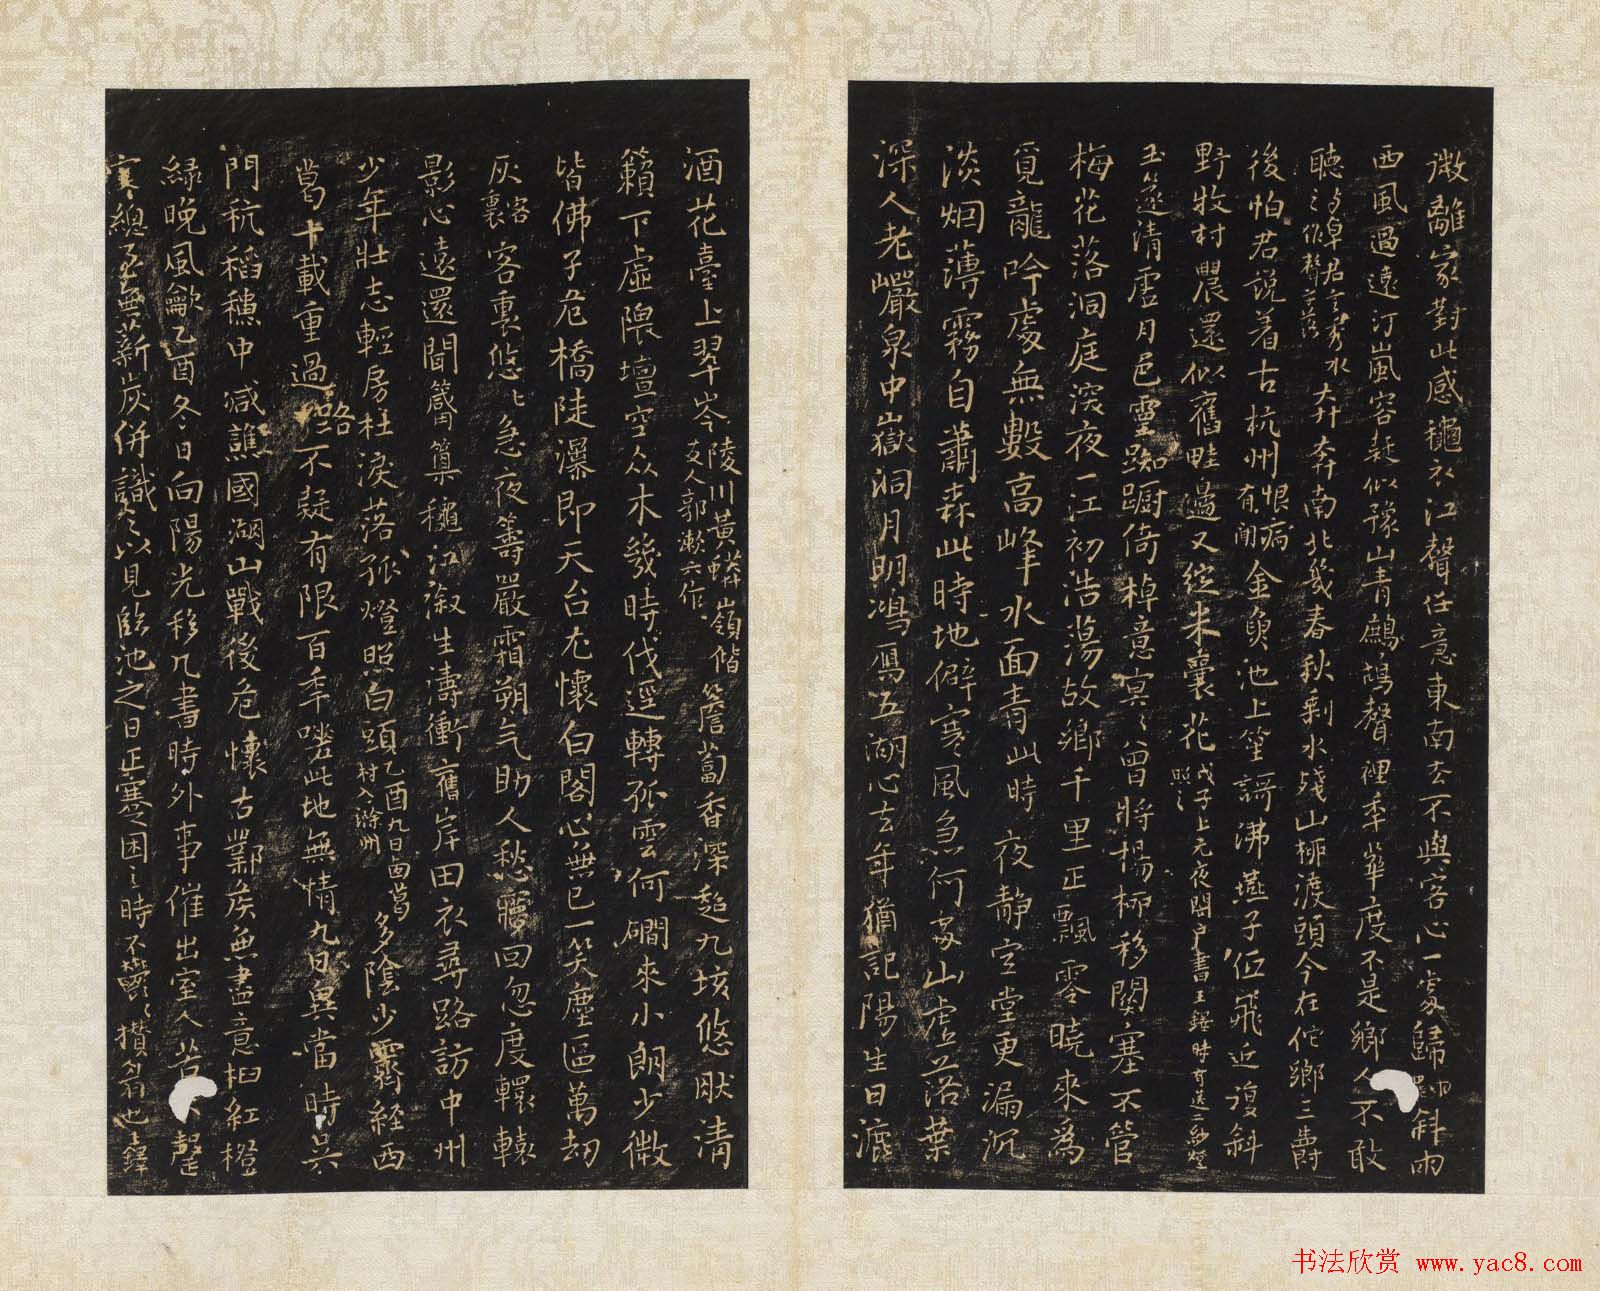 微離家對此感穐衣江聲任意東南去不與客心一處歸斜雨
西風過遠汀嵐容疑似豫山青鷓鴣聲裡年華度不是鄉人不敢
聽 奔南北幾春秋剩水殘山柳渡頭今在佗鄉三壽
後怕君說着古杭州恨病有開金魚池上笙謌沸燕子伍飛近復斜
野牧村農還似舊畦邊又綻米囊花戊子上元夜閉戶書王鐸時有送二紗燈照之
玉簺清虛月邑靈踟躕倚棹意冥冥曾將楊柳移關塞不管
梅花落洞庭深夜一江初浩蕩故鄉千里正飄零曉來為
覓龍吟處無數高峰水面青此時夜静空堂更漏沉
淡烟薄霧自蕭森此時地僻寒風急何處山虛落葉
深人老巖泉中嶽洞月明鴻鴈五湖心去年猶記陽生日漉
酒花臺上翠岑陵川黃蟒嶺偕友人郭漱六作簷蔔香深超九垓悠肰清
籟下虛隈壇空众木幾時伐逕轉孤雲何礀來小朗少微
皆佛子危橋陡瀑即天台尢懷白閣心無已一笑塵區萬劫
灰客裏客裏悠悠急夜籌嚴霜朔气助人愁 回忽度轘轅
影心遠還聞篅箕穐江溆生濤衝舊岸田衣尋路訪中州
少年壯志輕房杜淚落孤燈照白頭乙酉九日西葛村入滁州多陰少霽経西
葛十載重過路不疑有限百年嗟此地無情九日異當時吳
門秔稻穗中减譙國湖山戰後危懷古酇侯無盡意桕紅橙
綠晚風歙乙酉冬日向陽光移几書時外事催出室人苦 聲
寒總 無薪炭併識之以見臨池之日正塞之困之時不鬱鬱攢眉也鐸
书法欣赏 www.yac8.com